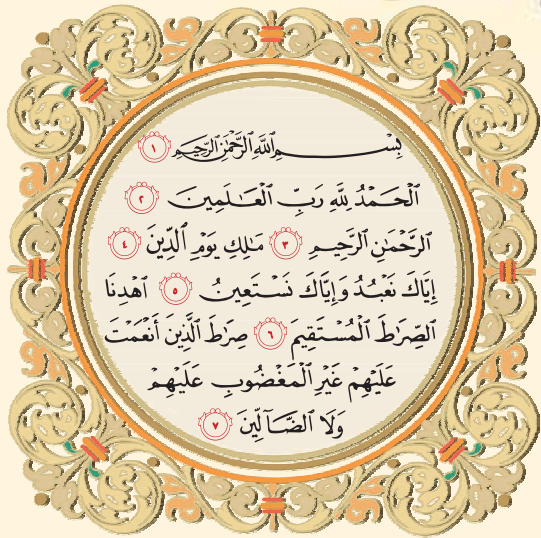 بِسْمِ اللَّهِ الرَّحْمَٰنِ الرَّحِيمِ ١
الْحَمْدُ لِلَّهِ رَبِّ الْعَٰلَمِينَ ٢
الرَّحْمَٰنِ الرَّحِيمِ ٣ مَٰلِكِ يَوْمِ الدِّينِ ٤
إِيَّاكَ نَعْبُدُ وَإِيَّاكَ نَسْتَعِينُ ٥ اهْدِنَا
الصِّرَٰطَ الْمُسْتَقِيمَ ٦ صِرَٰطَ الَّذِينَ أَنْعَمْتَ
عَلَيْهِمْ غَيْرِ الْمَغْضُوبِ عَلَيْهِمْ
وَلَا الضَّآلِّينَ ٧